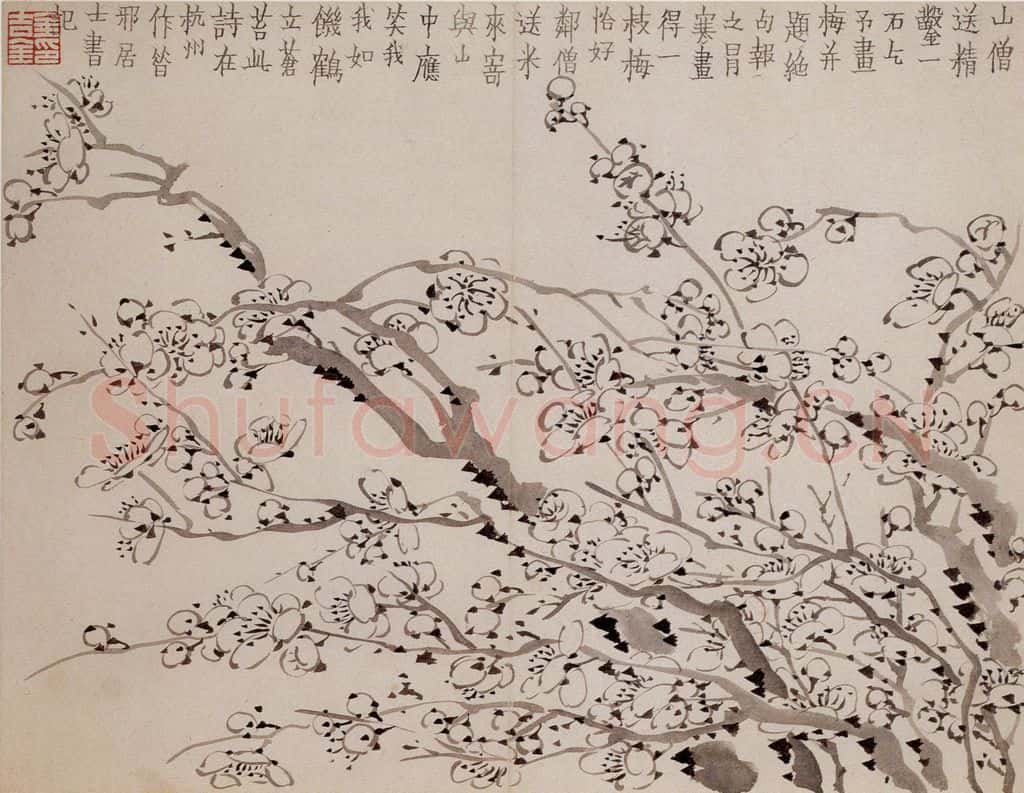 山僧
送精
鑿一
石乞
予畫
梅并
題絶
句報
之冒
寒畫
得一
枝梅
恰好
鄰僧
送米
來寄
與山
中應
笑我
我如
饑鶴
立蒼
苔此
詩在
杭州
作昔
邪居
士書
記
Shufawang.CN